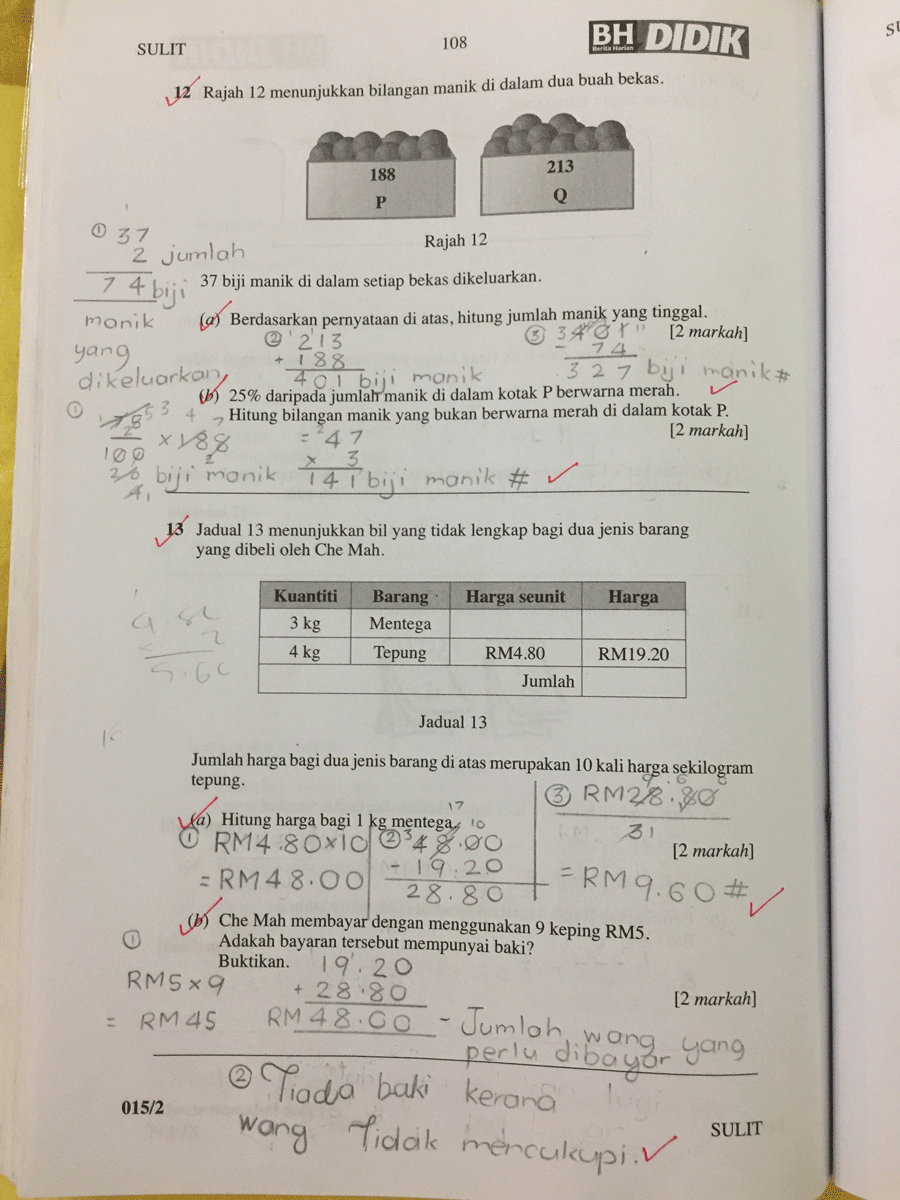 SULIT 108 BH Berita Harian DIDIK
12 Rajah 12 menunjukkan bilangan manik di dalam dua buah bekas.
188 213
P Q
Rajah 12
① 37
2 jumlah
74 biji
manik
yang
dikeluarkan
37 biji manik di dalam setiap bekas dikeluarkan.
(a) Berdasarkan pernyataan di atas, hitung jumlah manik yang tinggal.
[2 markah]
② 213
+ 188
401 biji manik
③ 401
- 74
327 biji manik #
(b) 25% daripada jumlah manik di dalam kotak P berwarna merah.
Hitung bilangan manik yang bukan berwarna merah di dalam kotak P.
[2 markah]
①
100 × 188
biji manik
= 47
× 3
141 biji manik #
13 Jadual 13 menunjukkan bil yang tidak lengkap bagi dua jenis barang
yang dibeli oleh Che Mah.
Kuantiti Barang Harga seunit Harga
3 kg Mentega
4 kg Tepung RM4.80 RM19.20
Jumlah
Jadual 13
Jumlah harga bagi dua jenis barang di atas merupakan 10 kali harga sekilogram
tepung.
(a) Hitung harga bagi 1 kg mentega.
[2 markah]
① RM4.80×10
= RM48.00
② 48.00
- 19.20
28.80
③ RM28.80
3
= RM9.60 #
(b) Che Mah membayar dengan menggunakan 9 keping RM5.
Adakah bayaran tersebut mempunyai baki?
Buktikan.
[2 markah]
①
RM5 × 9
= RM45
19.20
+ 28.80
RM48.00 - Jumlah wang yang
perlu dibayar
② Tiada baki kerana
wang Tidak mencukupi.
015/2 SULIT